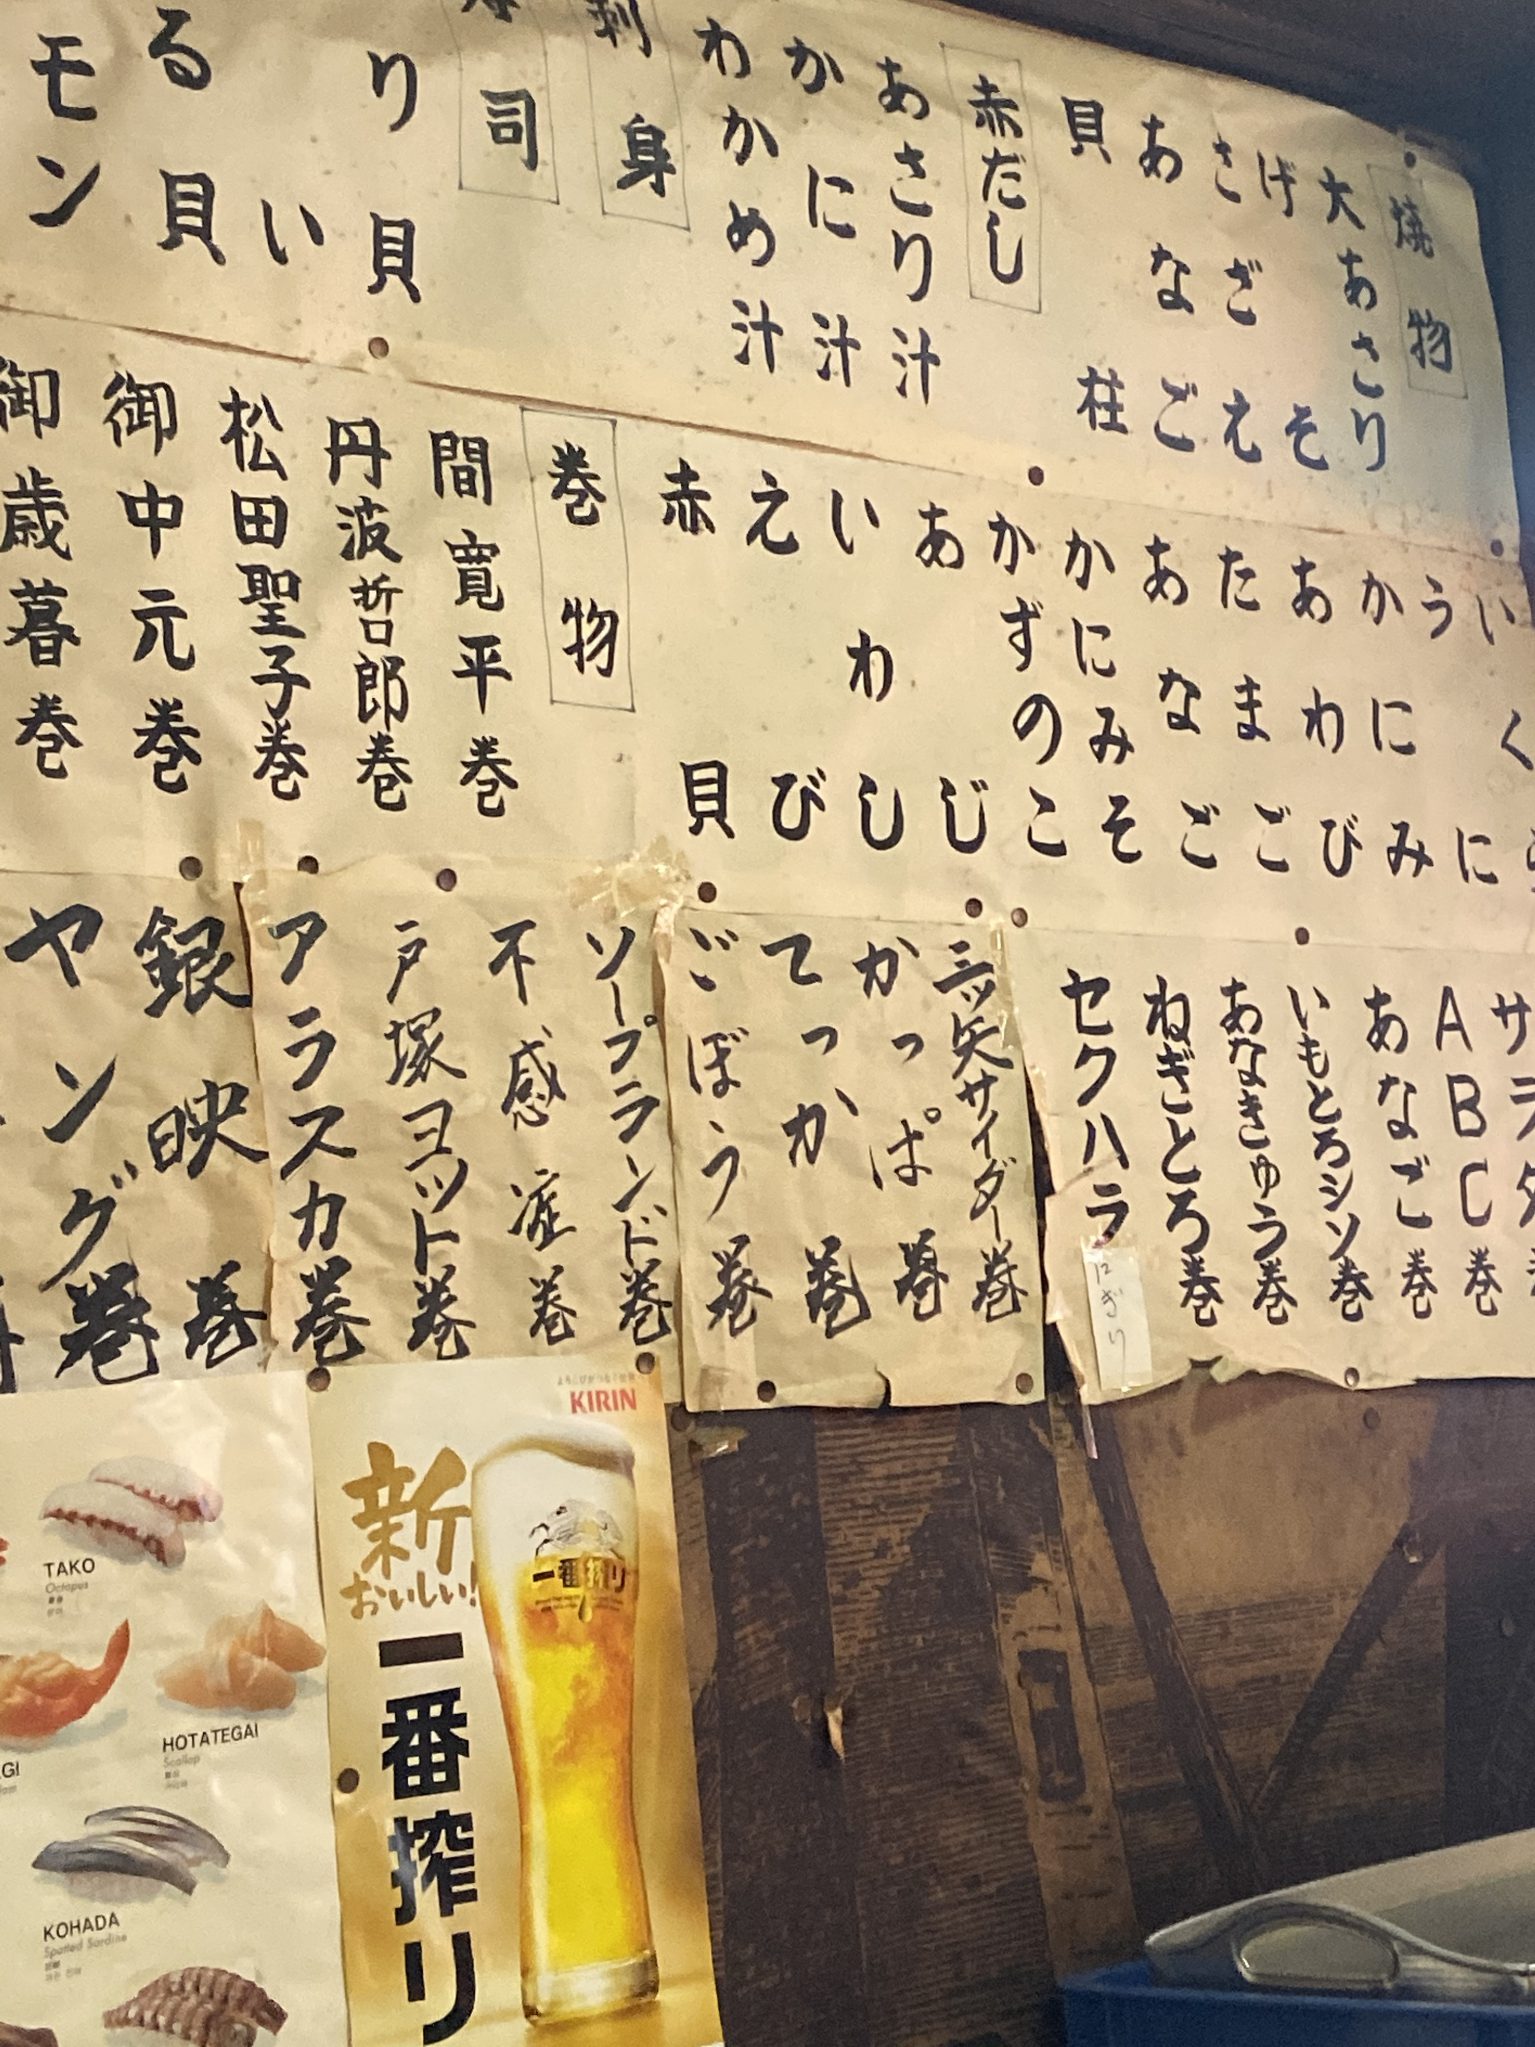 焼物
大あさり
げそ
さざえ
あなご
貝柱
赤だし
あさり汁
かに汁
わかめ汁
刺身
司
り貝
い
る貝
モン
いく
うに
かにみ
あわび
たまご
あなご
かにみそ
かずのこ
あじ
いわし
えび
赤貝
巻物
間寛平巻
丹波哲郎巻
松田聖子巻
御中元巻
御歳暮巻
サラダ
ABC巻
あなご巻
いもとろシソ巻
あなきゅう巻
ねぎとろ巻
セクハラ
にぎり
三ッ矢サイダー巻
かっぱ巻
てっか巻
ごぼう巻
ソープランド巻
不感症巻
戸塚ヨット巻
アラスカ巻
銀映巻
ヤング巻
KIRIN
新
おいしい!
一番搾り
一番搾り
TAKO
Octopus
HOTATEGAI
Scallop
GI
KOHADA
Spotted Sardine